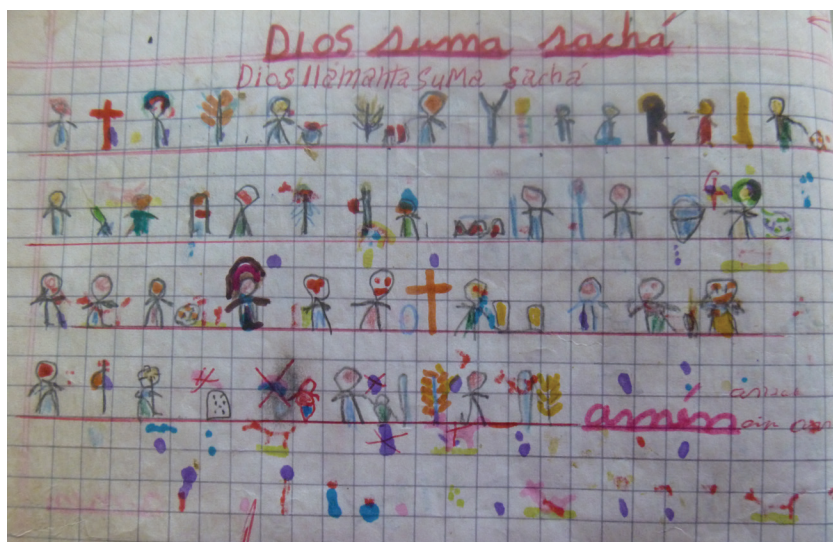 DIOS suma sachá
Dios llamanta suma sachá
amén